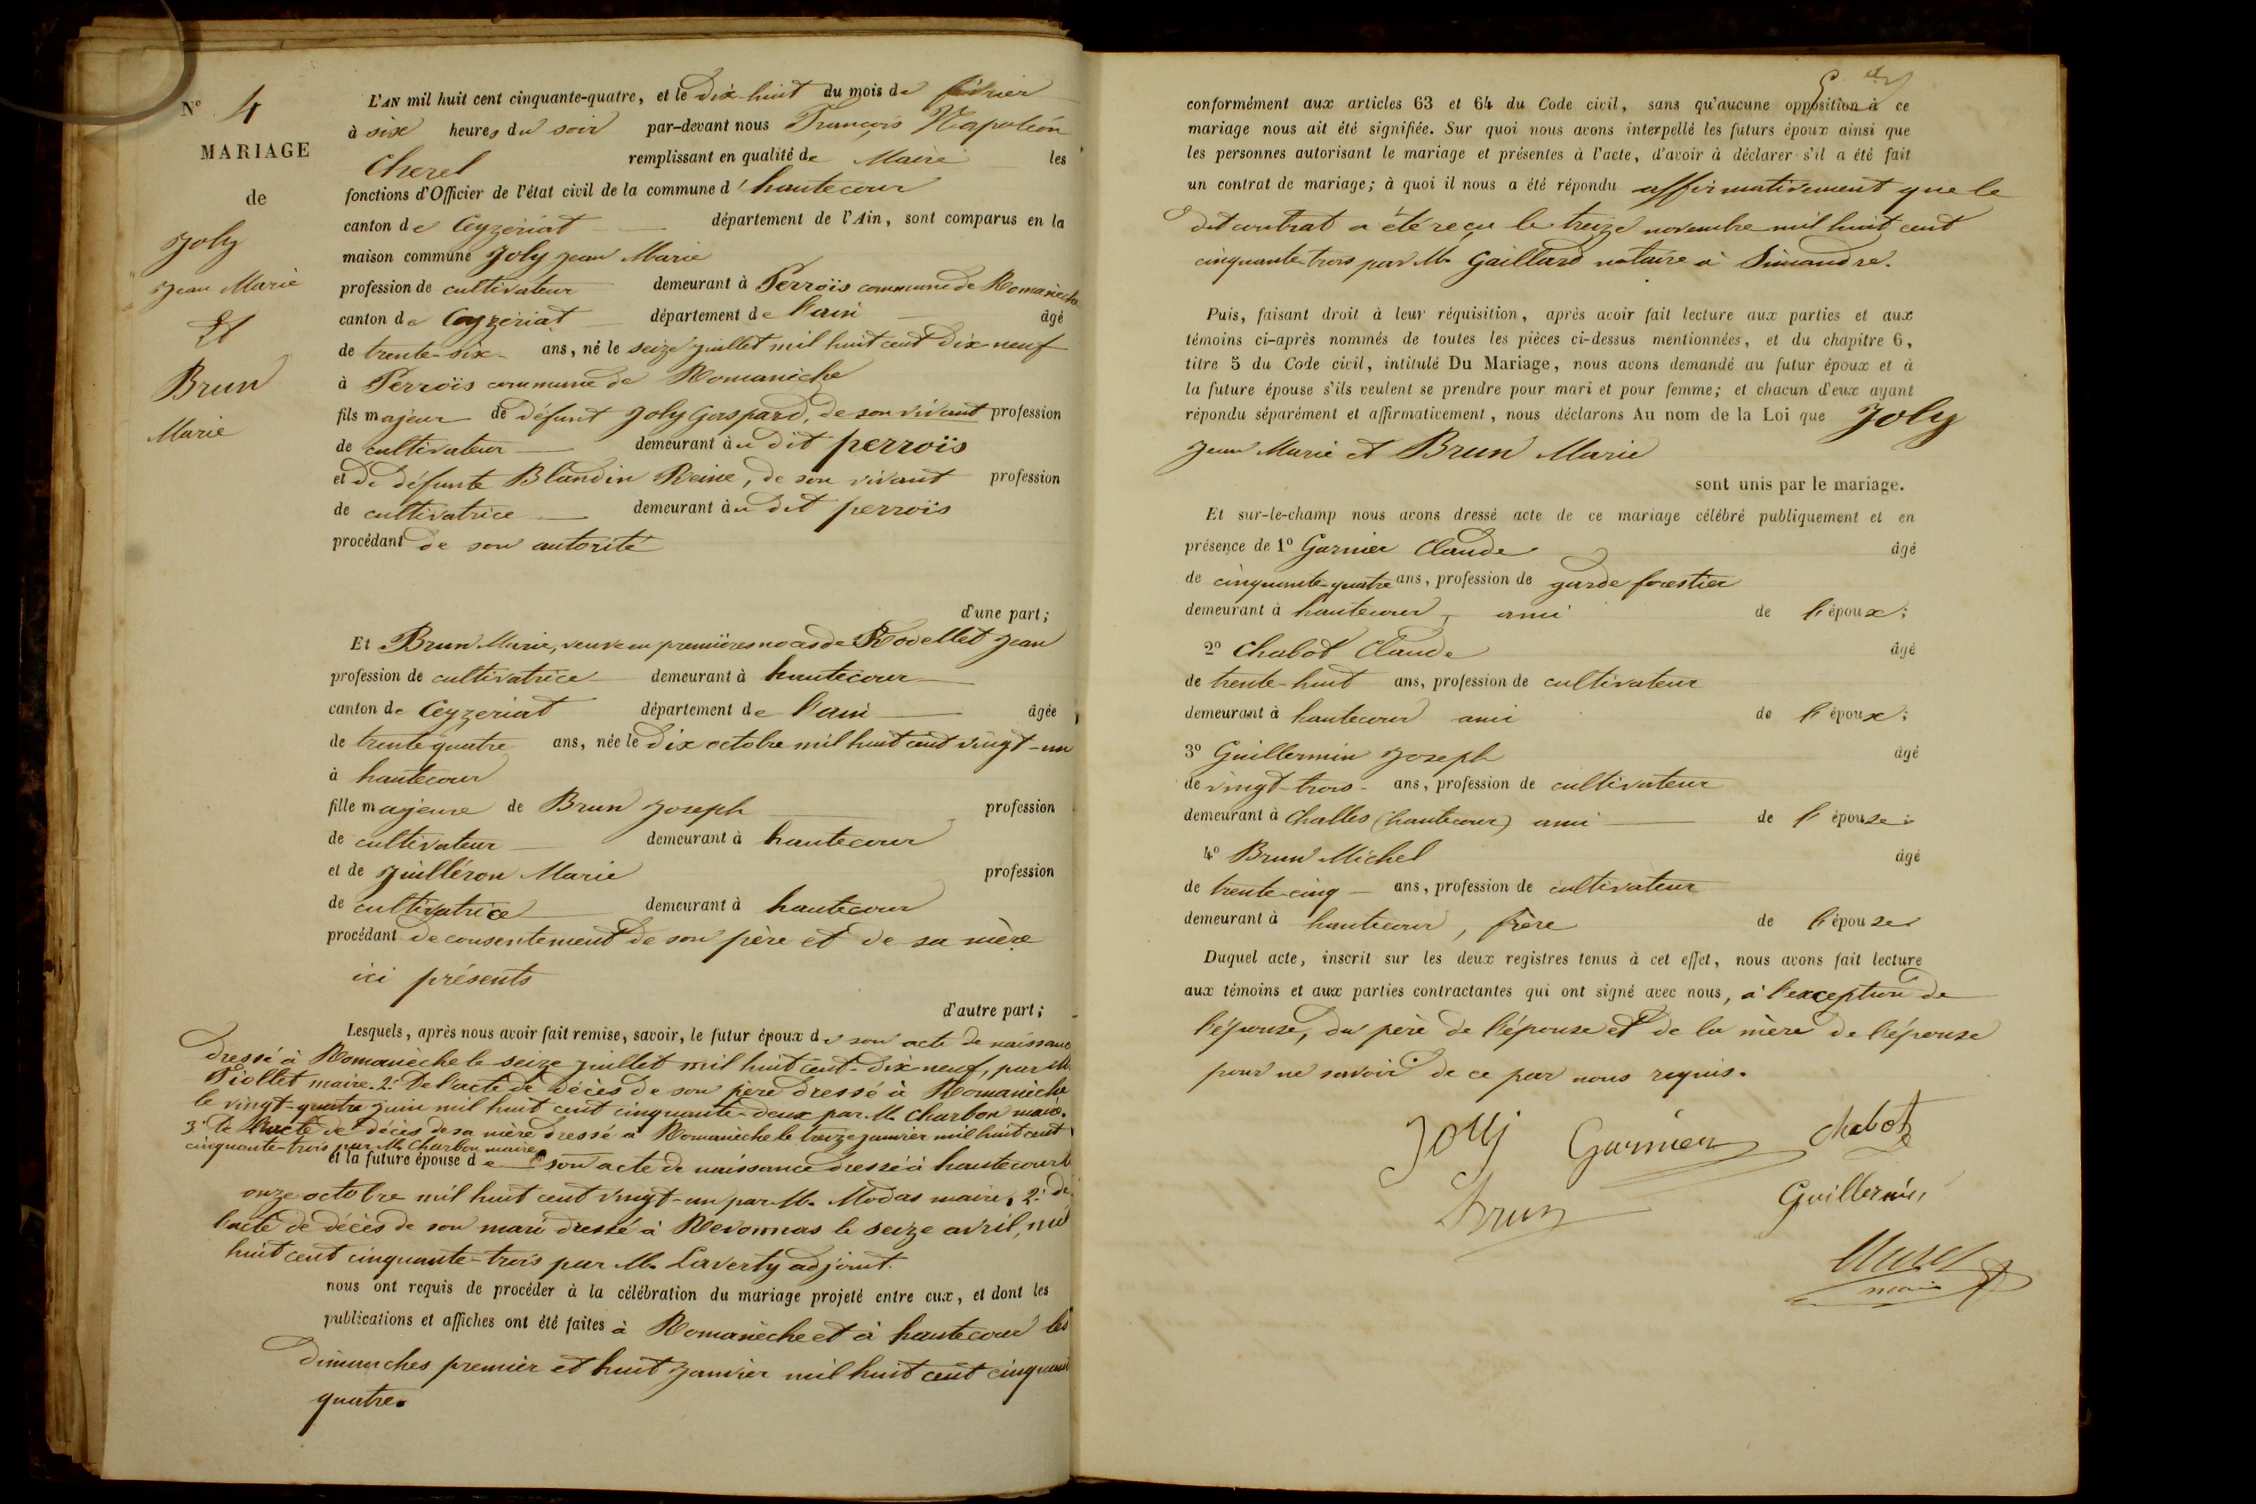 N° 4
MARIAGE
de
Joly
Jean Marie
Et
Brun
Marie
L'AN mil huit cent cinquante-quatre, et le dix-huit du mois de février
à six heures du soir par-devant nous François Napoléon
Cherel remplissant en qualité de Maire les
fonctions d'Officier de l'état civil de la commune d'hautecour
canton de Ceyzeriat département de l'Ain, sont comparus en la
maison commune Joly Jean Marie
profession de cultivateur demeurant à Perroïs commune de Romanèche
canton de Ceyzeriat département de l'ain âgé
de trente-six ans, né le seize juillet mil huit cent dix-neuf
à Perroïs commune de Romanèche
fils majeur de défunt Joly Gaspard, de son vivant profession
de cultivateur demeurant àu dit perroïs
et de défunte Blandin Reine, de son vivant profession
de cultivatrice demeurant àu dit perroïs
procédant de son autorité
d'une part;
Et Brun Marie, veuve en premières noces de Rodellet Jean
profession de cultivatrice demeurant à hautecour
canton de Ceyzeriat département de l'ain âgée
de trente quatre ans, née le dix octobre mil huit cent vingt-un
à hautecour
fille majeure de Brun Joseph profession
de cultivateur demeurant à hautecour
et de Juilléron Marie profession
de cultivatrice demeurant à hautecour
procédant de consentement de son père et de sa mère
ici présents
d'autre part;
Lesquels, après nous avoir fait remise, savoir, le futur époux de son acte de naissance
dressé à Romanèche le seize juillet mil huit cent-dix neuf, par M.
Piollet maire. 2° De l'acte de décès de son père dressé à Romanèche
le vingt-quatre juin mil huit cent cinquante-deux par M. Charbon maire.
3° de l'acte de décès de sa mère dressé à Romanèche le treize janvier mil huit cent
cinquante-trois par M. Charbon maire
et la future épouse de son acte de naissance dressé à hautecour le
onze octobre mil huit cent vingt-un par M. Modas maire, 2° de
l'acte de décès de son mari dressé à Revonnas le seize avril, mil
huit cent cinquante-trois par M. Laverty adjoint.
nous ont requis de procéder à la célébration du mariage projeté entre eux, et dont les
publications et affiches ont été faites à Romanèche et à hautecour les
dimanches premier et huit janvier mil huit cent cinquante
quatre.
conformément aux articles 63 et 64 du Code civil, sans qu'aucune opposition à ce
mariage nous ait été signifiée. Sur quoi nous avons interpellé les futurs époux ainsi que
les personnes autorisant le mariage et présentes à l'acte, d'avoir à déclarer s'il a été fait
un contrat de mariage; à quoi il nous a été répondu affirmativement que le
dit contrat a été reçu le treize novembre mil huit cent
cinquante-trois par M. Gaillard notaire à Simandre.
Puis, faisant droit à leur réquisition, après avoir fait lecture aux parties et aux
témoins ci-après nommés de toutes les pièces ci-dessus mentionnées, et du chapitre 6,
titre 5 du Code civil, intitulé Du Mariage, nous avons demandé au futur époux et à
la future épouse s'ils veulent se prendre pour mari et pour femme; et chacun d'eux ayant
répondu séparément et affirmativement, nous déclarons Au nom de la Loi que Joly
Jean Marie et Brun Marie
sont unis par le mariage.
Et sur-le-champ nous avons dressé acte de ce mariage célébré publiquement et en
présence de 1° Garnier Claude âgé
de cinquante-quatre ans, profession de garde forestier
demeurant à hautecour, ami de l'époux;
2° Chabot Claude âgé
de trente-huit ans, profession de cultivateur
demeurant à hautecour ami de l'époux;
3° Guillermin Joseph âgé
de vingt-trois ans, profession de cultivateur
demeurant à Challes (hautecour) ami de l'épouse;
4° Brun Michel âgé
de trente-cinq ans, profession de cultivateur
demeurant à hautecour, frère de l'épouse
Duquel acte, inscrit sur les deux registres tenus à cet effet, nous avons fait lecture
aux témoins et aux parties contractantes qui ont signé avec nous, à l'exception de
l'épouse, du père de l'épouse et de la mère de l'épouse
pour ne savoir de ce par nous requis.
Joly Garnier Chabot
Brun Guillermin
Cherel
maire